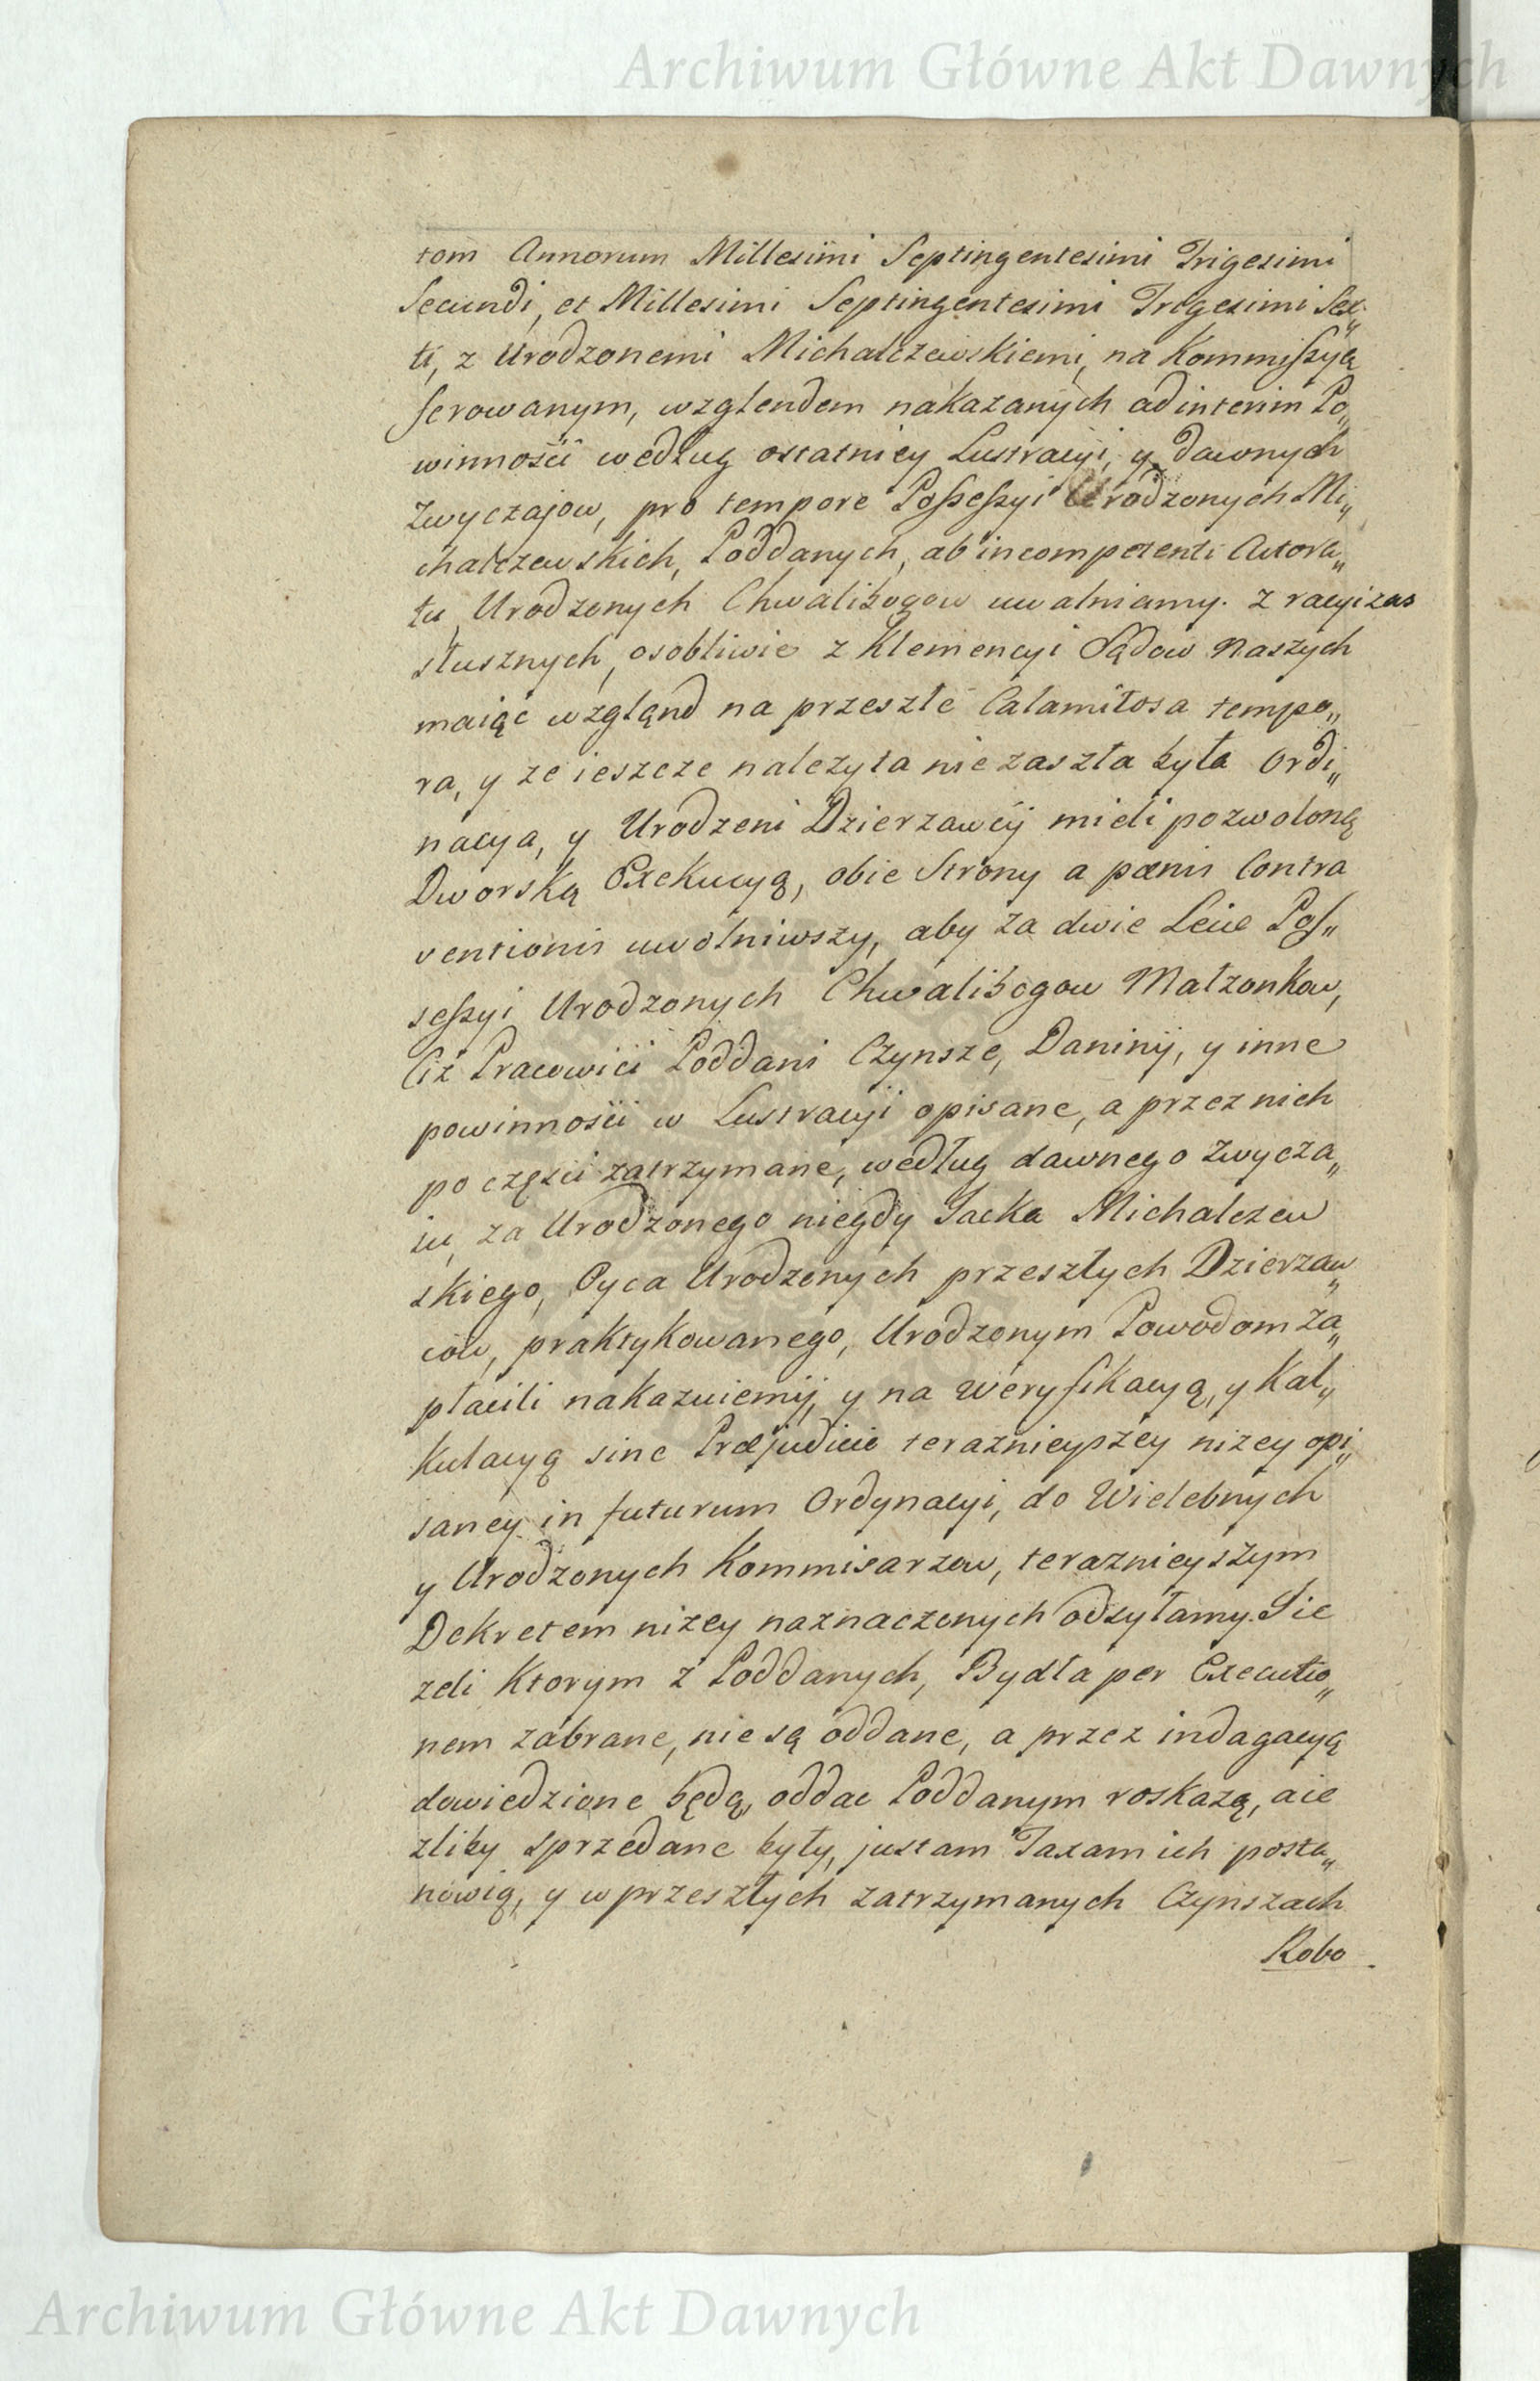 Archiwum Główne Akt Dawnych
tom Annorum Millesimi Septingentesimi Trigesimi
Secundi, et Millesimi Septingentesimi Trigesimi Sex„
ti, z Urodzonemi Michalczewskiemi, na Kommissyą
ferowanym, wzglendem nakazanych ad interim Po„
winnosci według ostatniey Lustracyi, y dawnych
Zwyczajow, pro tempore Possessyi Urodzonych Mi„
chalczewskich, Poddanych, ab incompetenti Actora„
tu Urodzonych Chwalibogow uwalniamy. Z racyi zas
słusznych, osobliwie z Klemencyi Sądow Naszych
maiąc wzgląnd na przeszłe Calamitosa tempo„
ra, y ze ieszcze nalezyta nie zaszła była Ordi„
nacya, y Urodzeni Dzierzawcy mieli pozwoloną
Dworską Exekucyą, obie Strony a pœnis Contra
ventionis uwolniwszy, aby za dwie Lecie Pos„
sessyi Urodzonych Chwalibogow Małzonkow,
Ciż Pracowici Poddani Czynsze, Daniny, y inne
powinnosci w Lustracyi opisane, a przez nich
po częsci zatrzymane, według dawnego Zwycza„
iu, za Urodzonego niegdy Jacka Michalczew
skiego, Oyca Urodzonych przeszłych Dzierzaw„
cow, praktykowanego, Urodzonym Powodom Za„
płacili nakazuiemy, y na Weryfikacyą, y Kal„
kulacyą sine Præjudicio teraznieyszey nizey opi„
saney in futurum Ordynacyi, do Wielebnych
y Urodzonych Kommisarzow, teraznieyszym
Dekretem nizey naznaczonych odsyłamy. Jie
zeli Ktorym z Poddanych, Bydła per Executio„
nem zabrane, nie są oddane, a przez indagacyą
dowiedzione będą, oddac Poddanym roskazą, aie
zliby sprzedane były, justam Taxam ich posta„
nowią, y w przeszłych zatrzymanych Czynszach
Robo
Archiwum Główne Akt Dawnych